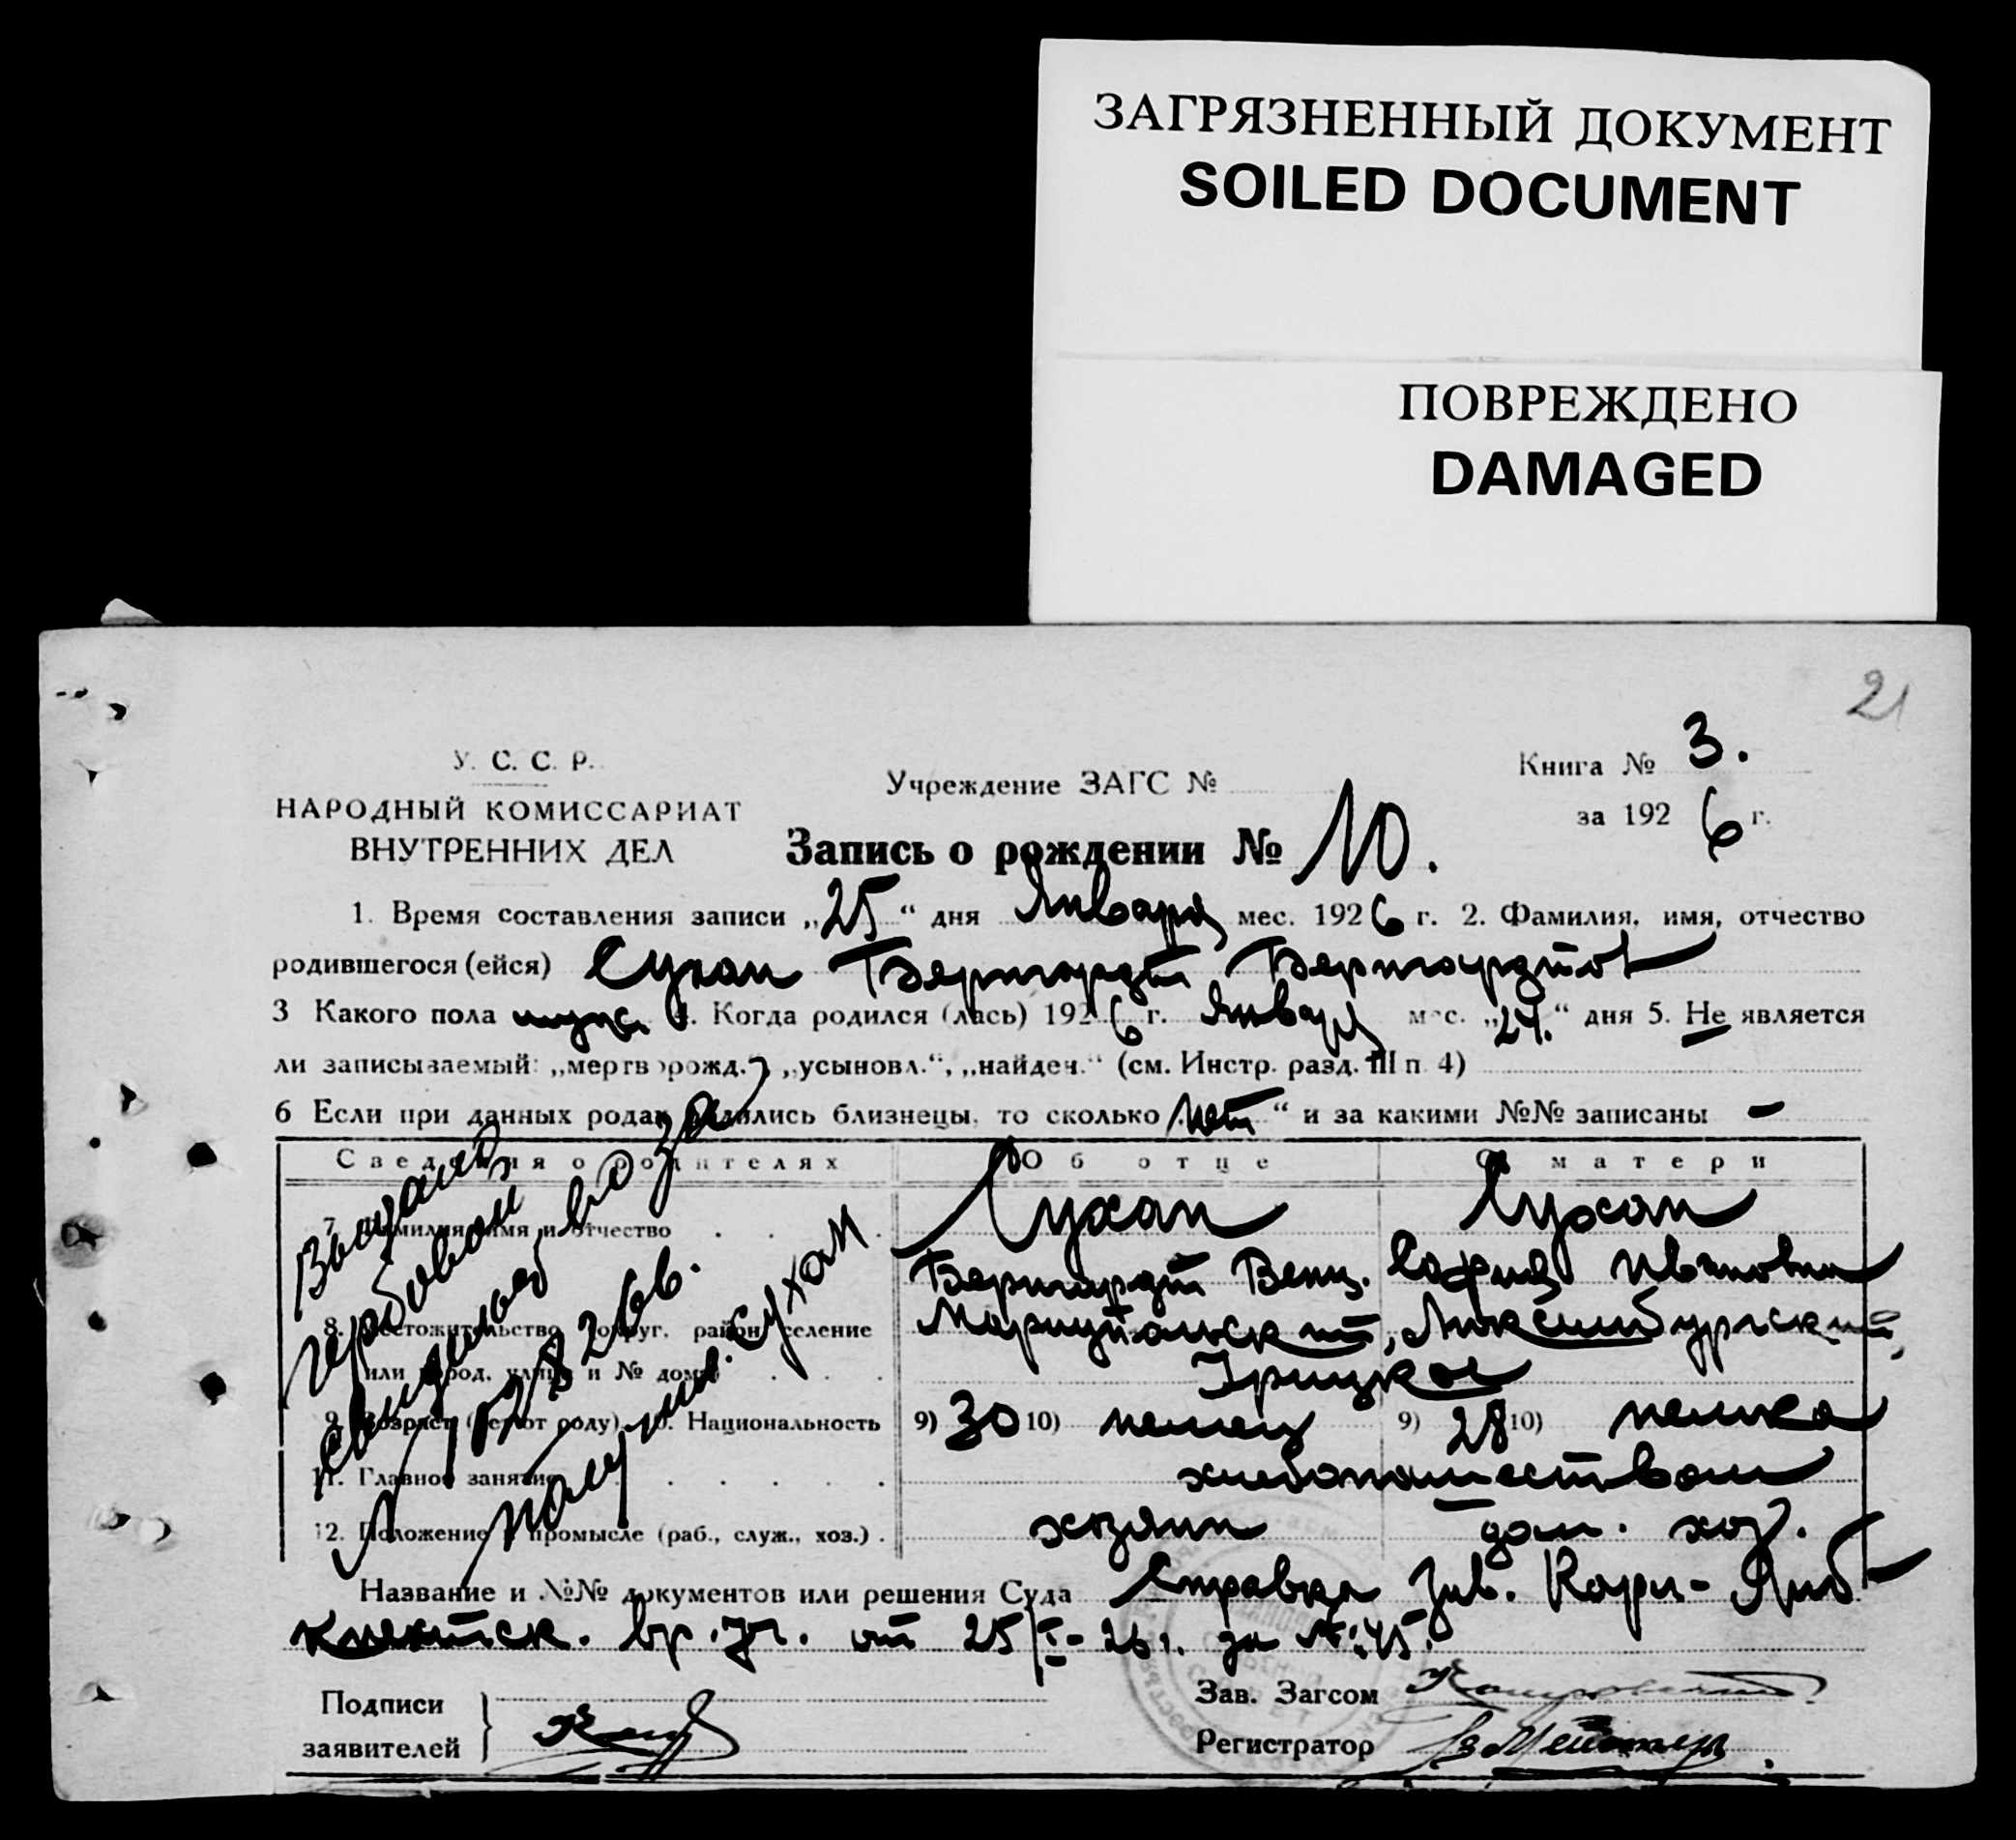 ЗАГРЯЗНЕННЫЙ ДОКУМЕНТ
SOILED DOCUMENT
ПОВРЕЖДЕНО
DAMAGED
21
У. С. С. Р.
НАРОДНЫЙ КОМИССАРИАТ
ВНУТРЕННИХ ДЕЛ
Учреждение ЗАГС №
Книга № 3.
за 1926 г.
Запись о рождении № 10.
1. Время составления записи „25“ дня Января мес. 1926 г. 2. Фамилия, имя, отчество
родившегося (ейся) Сухан Бернгардт Бернгардтов
3 Какого пола мужс. 4. Когда родился (лась) 1926 г. Января мес. „24.“ дня 5. Не является
ли записываемый: „мертворожд.“, „усыновл.“, „найден.“ (см. Инстр. разд. III п. 4)
6 Если при данных родах родились близнецы, то сколько „нет“ и за какими №№ записаны –
Сведения о родителях Об отце О матери
7. Фамилия, имя и отчество Сухан Сухан
Бернгардт Венц. София Ивановна
8. Местожительство округ, район, селение Мариупольский, Люксембургский,
или город, улица и № дома
9. Возраст (лет от роду) 10. Национальность 9) 30 10) немец 9) 28 10) немка
11. Главное занятие хлебопашеством
12. Положение в промысле (раб., служ., хоз.) хозяин дом. хоз.
Выдано
гербовой
1926 г.
Сухан
Название и №№ документов или решения Суда Справка Зав.
вр. уч. от 25/I-26 г. за № 45.
Подписи
заявителей
Зав. Загсом
Регистратор